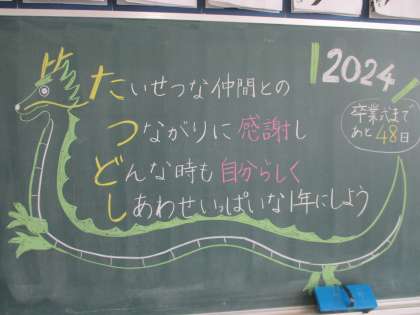 たいせつな仲間との
つながりに感謝し
どんな時も自分らしく
しあわせいっぱいな1年にしよう
2024
卒業式まで
あと48日